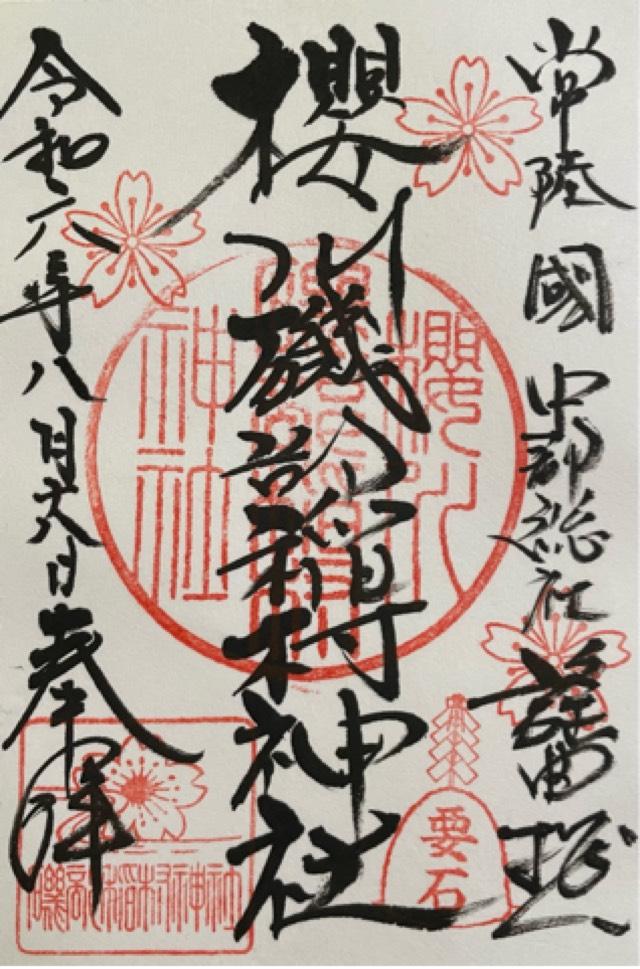 常陸國 中郡総社
櫻川磯部稲村神社
令和六年八月十六日 奉拝
櫻川
磯部稲村
神社
要石
磯部稲村神社